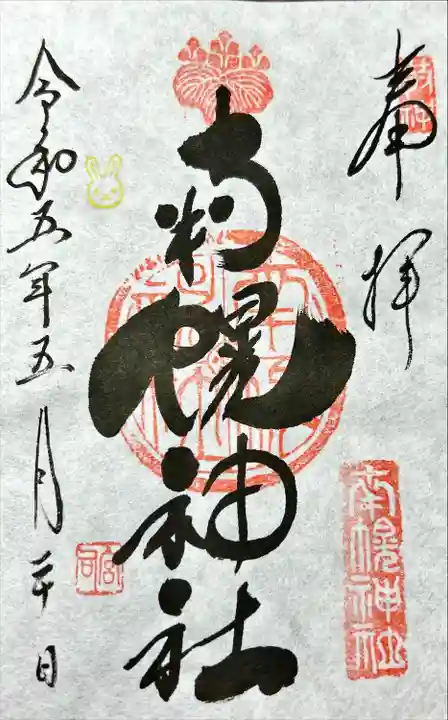 奉拝
南幌神社
南幌神社
令和五年五月二十日
宮司